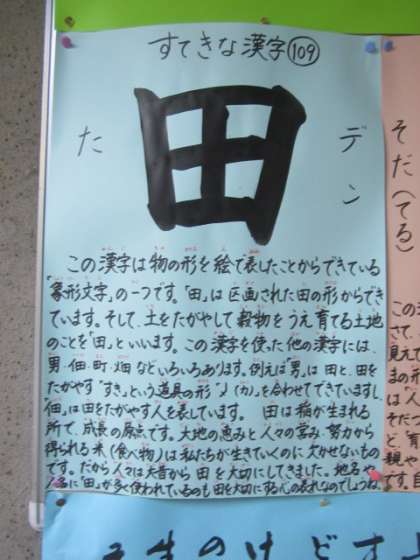 すてきな漢字109
田
た
デン
この漢字は物の形を絵で表したことからできている
「象形文字」の一つです。「田」は区画された田の形からでき
ています。そして、土をたがやして穀物をうえ育てる土地
のことを「田」といいます。この漢字を使った他の漢字には、
男・佃・町・畑などいろいろあります。例えば「男」は田と、田を
たがやす"すき"という道具の形"⼃(力)を合わせてできていますし、
「佃」は田をたがやす人を表しています。 田は稲が生まれる
所で、成長の原点です。大地の恵みと人々の営み・努力から
得られる米(食べ物)は私たちが生きていくのに欠かせないもの
です。だから人々は大昔から田を大切にしてきました。地名や
人名に「田」が多く使われているのも田を大切にする心の表れなのでしょうね。
そだ(てる)